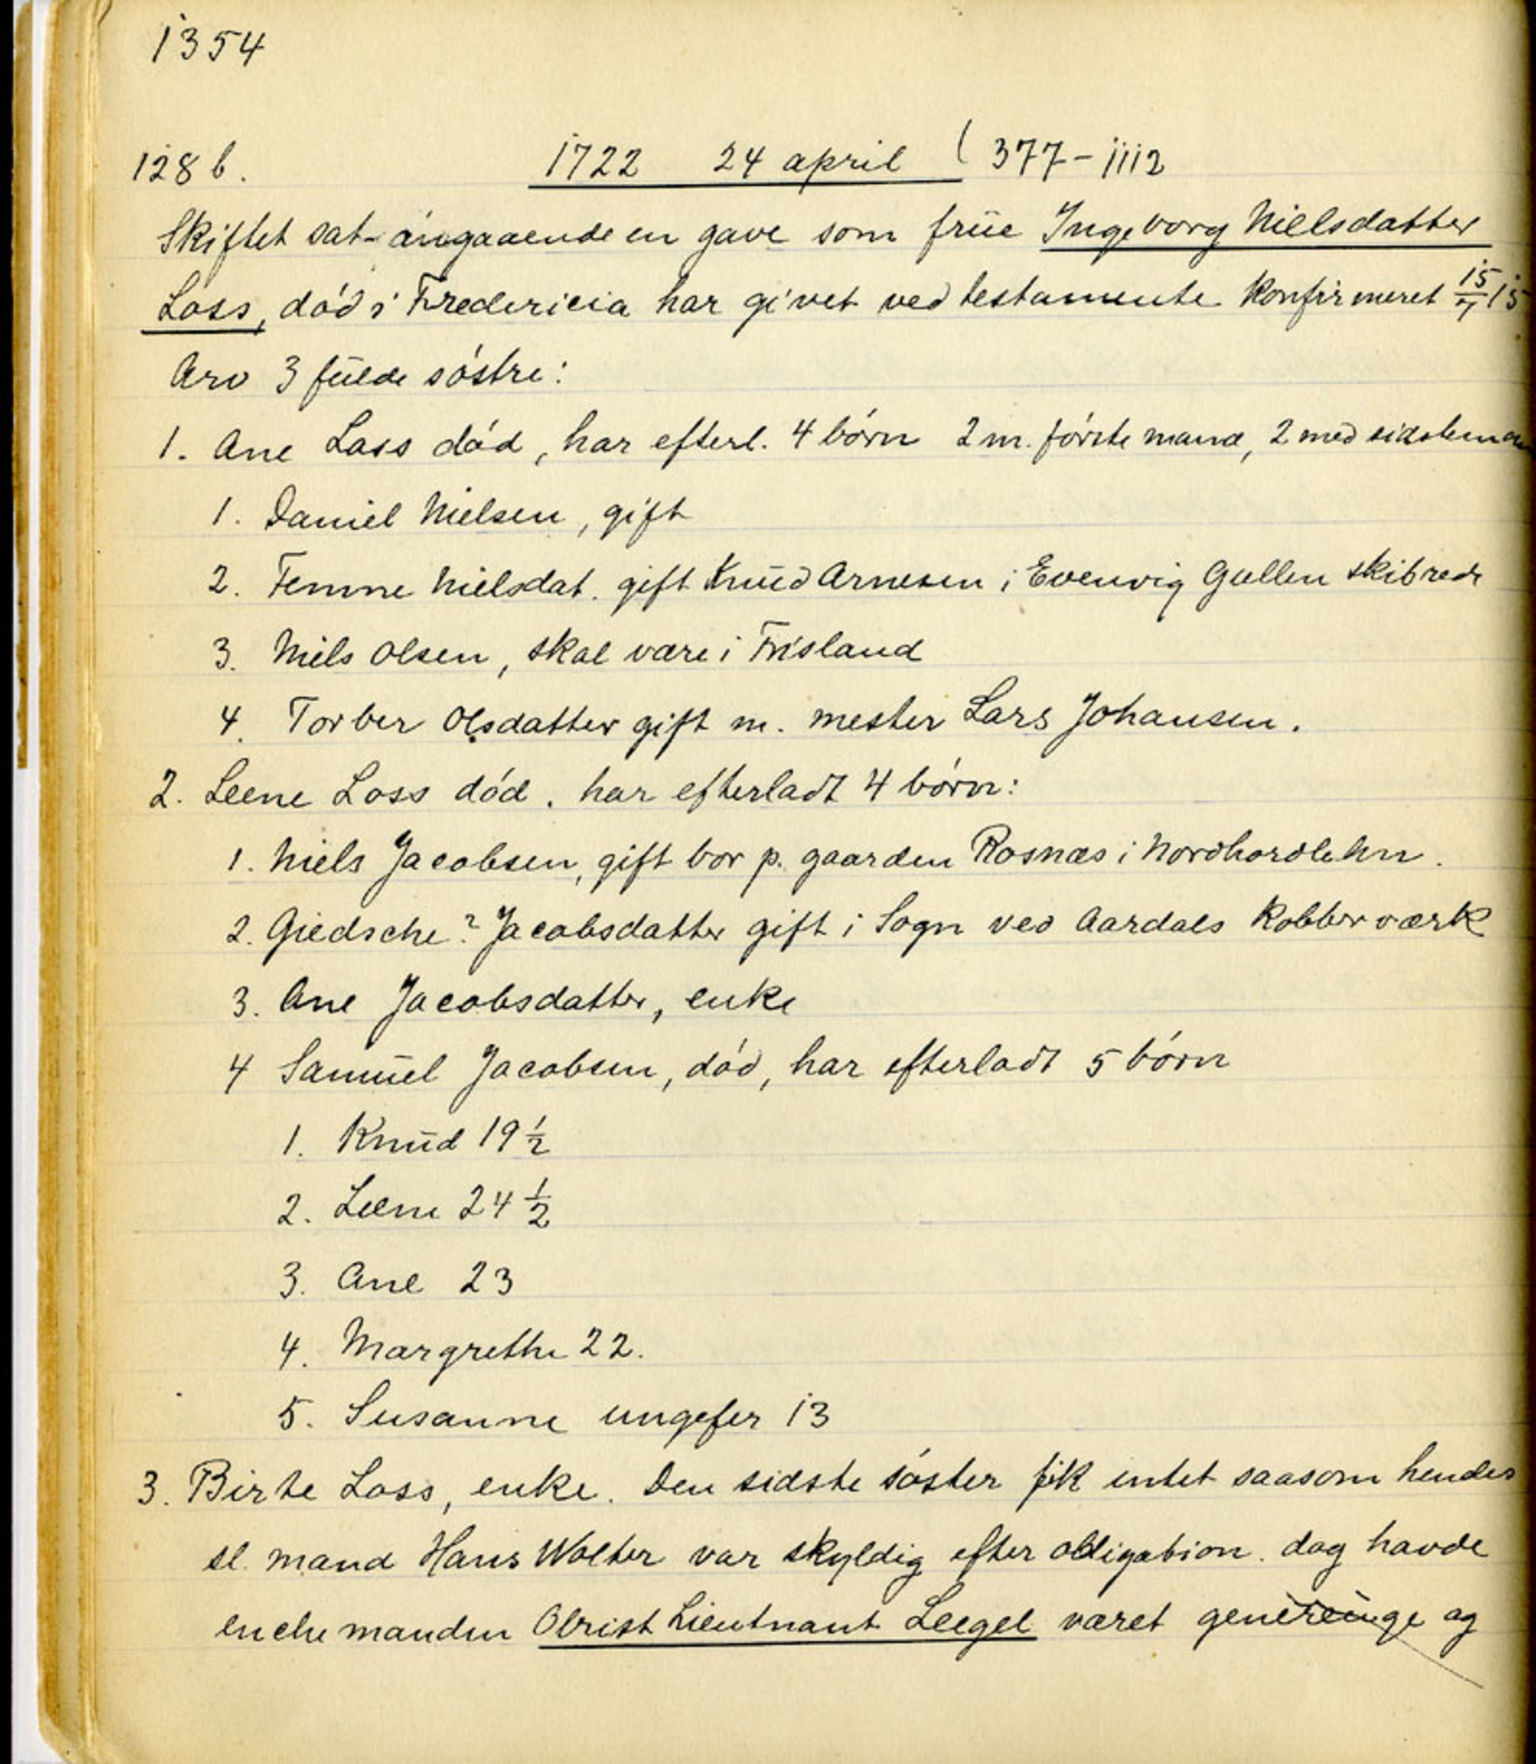 1354
128 b. 1722 24 april ( 377-1112
Skiftet sat angaaende en gave som frue Ingeborg Nielsdatter
Loss, död i Fredericia har givet ved testamente Konfirmeret 15/7 15
Arv 3 fulde söstre:
1. Ane Loss död, har efterl. 4 börn 2 m. förste mand, 2 med sidste man
1. Daniel Nielsen, gift
2. Femme Nielsdat. gift Knud Arnesen i Evenvig Gullen skibrede
3. Niels Olsen, skal være i Frisland
4. Torber Olsdatter gift m. mester Lars Johansen.
2. Leene Loss död. har efterladt 4 börn:
1. Niels Jacobsen, gift bor p. gaarden Rosnæs i Nordhordlehn.
2. Giedsche? Jacobsdatter gift i Sogn ved Aardals Kobberværk
3. Ane Jacobsdatter, enke
4 Samuel Jacobsen, död, har efterladt 5 börn
1. Knud 19 1/2
2. Leene 24 1/2
3. Ane 23
4. Margrethe 22.
5. Susanne ungefer 13
3. Birte Loss, enke. Den sidste söster fik intet saasom hendes
sl. mand Hans Wolter var skyldig efter obligation. dog havde
enchemanden Obrist Lieutnant Leegel været og